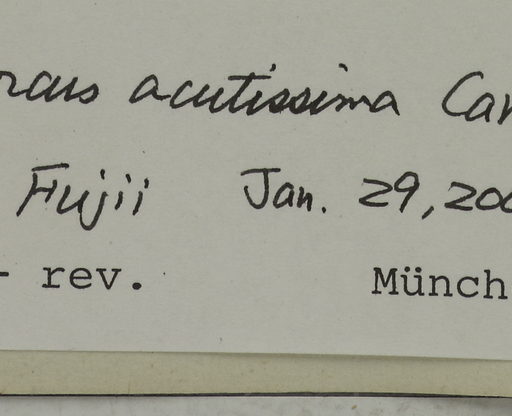 rcus acutissima Car
Fujii Jan. 29, 200
- rev. Münch